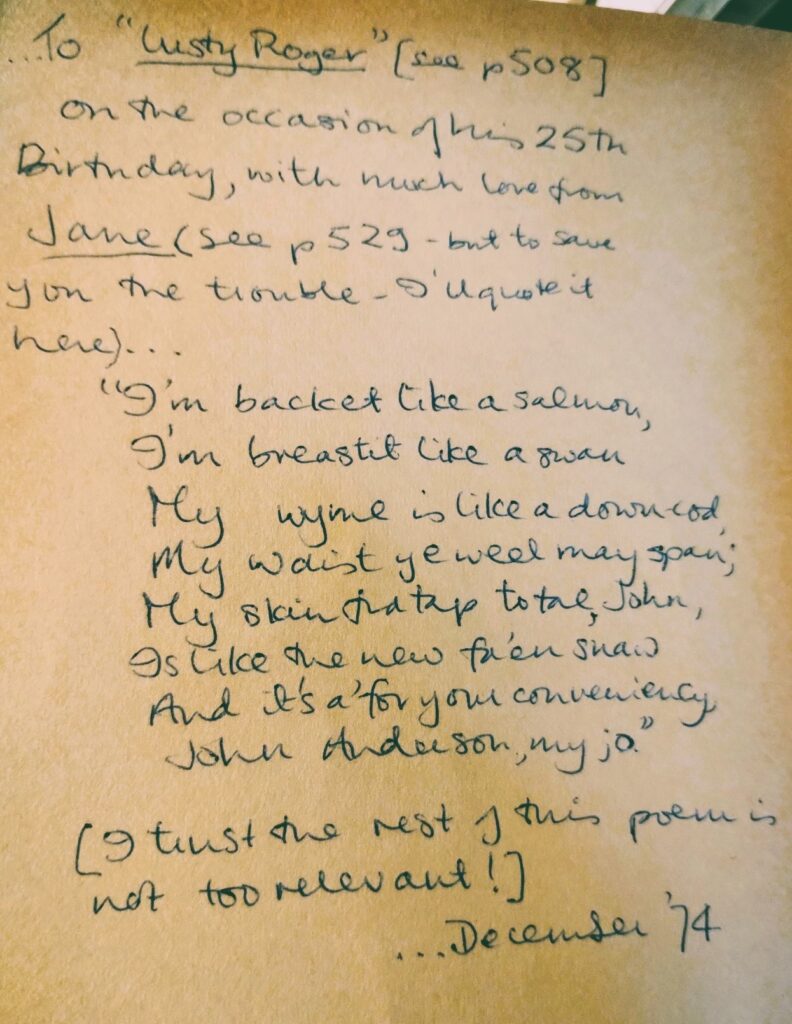 ...To "Lusty Roger" [see p508]
on the occasion of his 25th
Birthday, with much love from
Jane (see p 529 - but to save
you the trouble - I'll quote it
here)...
"I'm backet like a salmon,
I'm breastit like a swan
My wyme is like a down-cod,
My waist ye weel may span;
My skin fra tap to tae, John,
Is like the new fa'en snaw
And it's a' for your conveniency,
John Anderson, my jo."
[I trust the rest of this poem is
not too relevant!]
...December '74